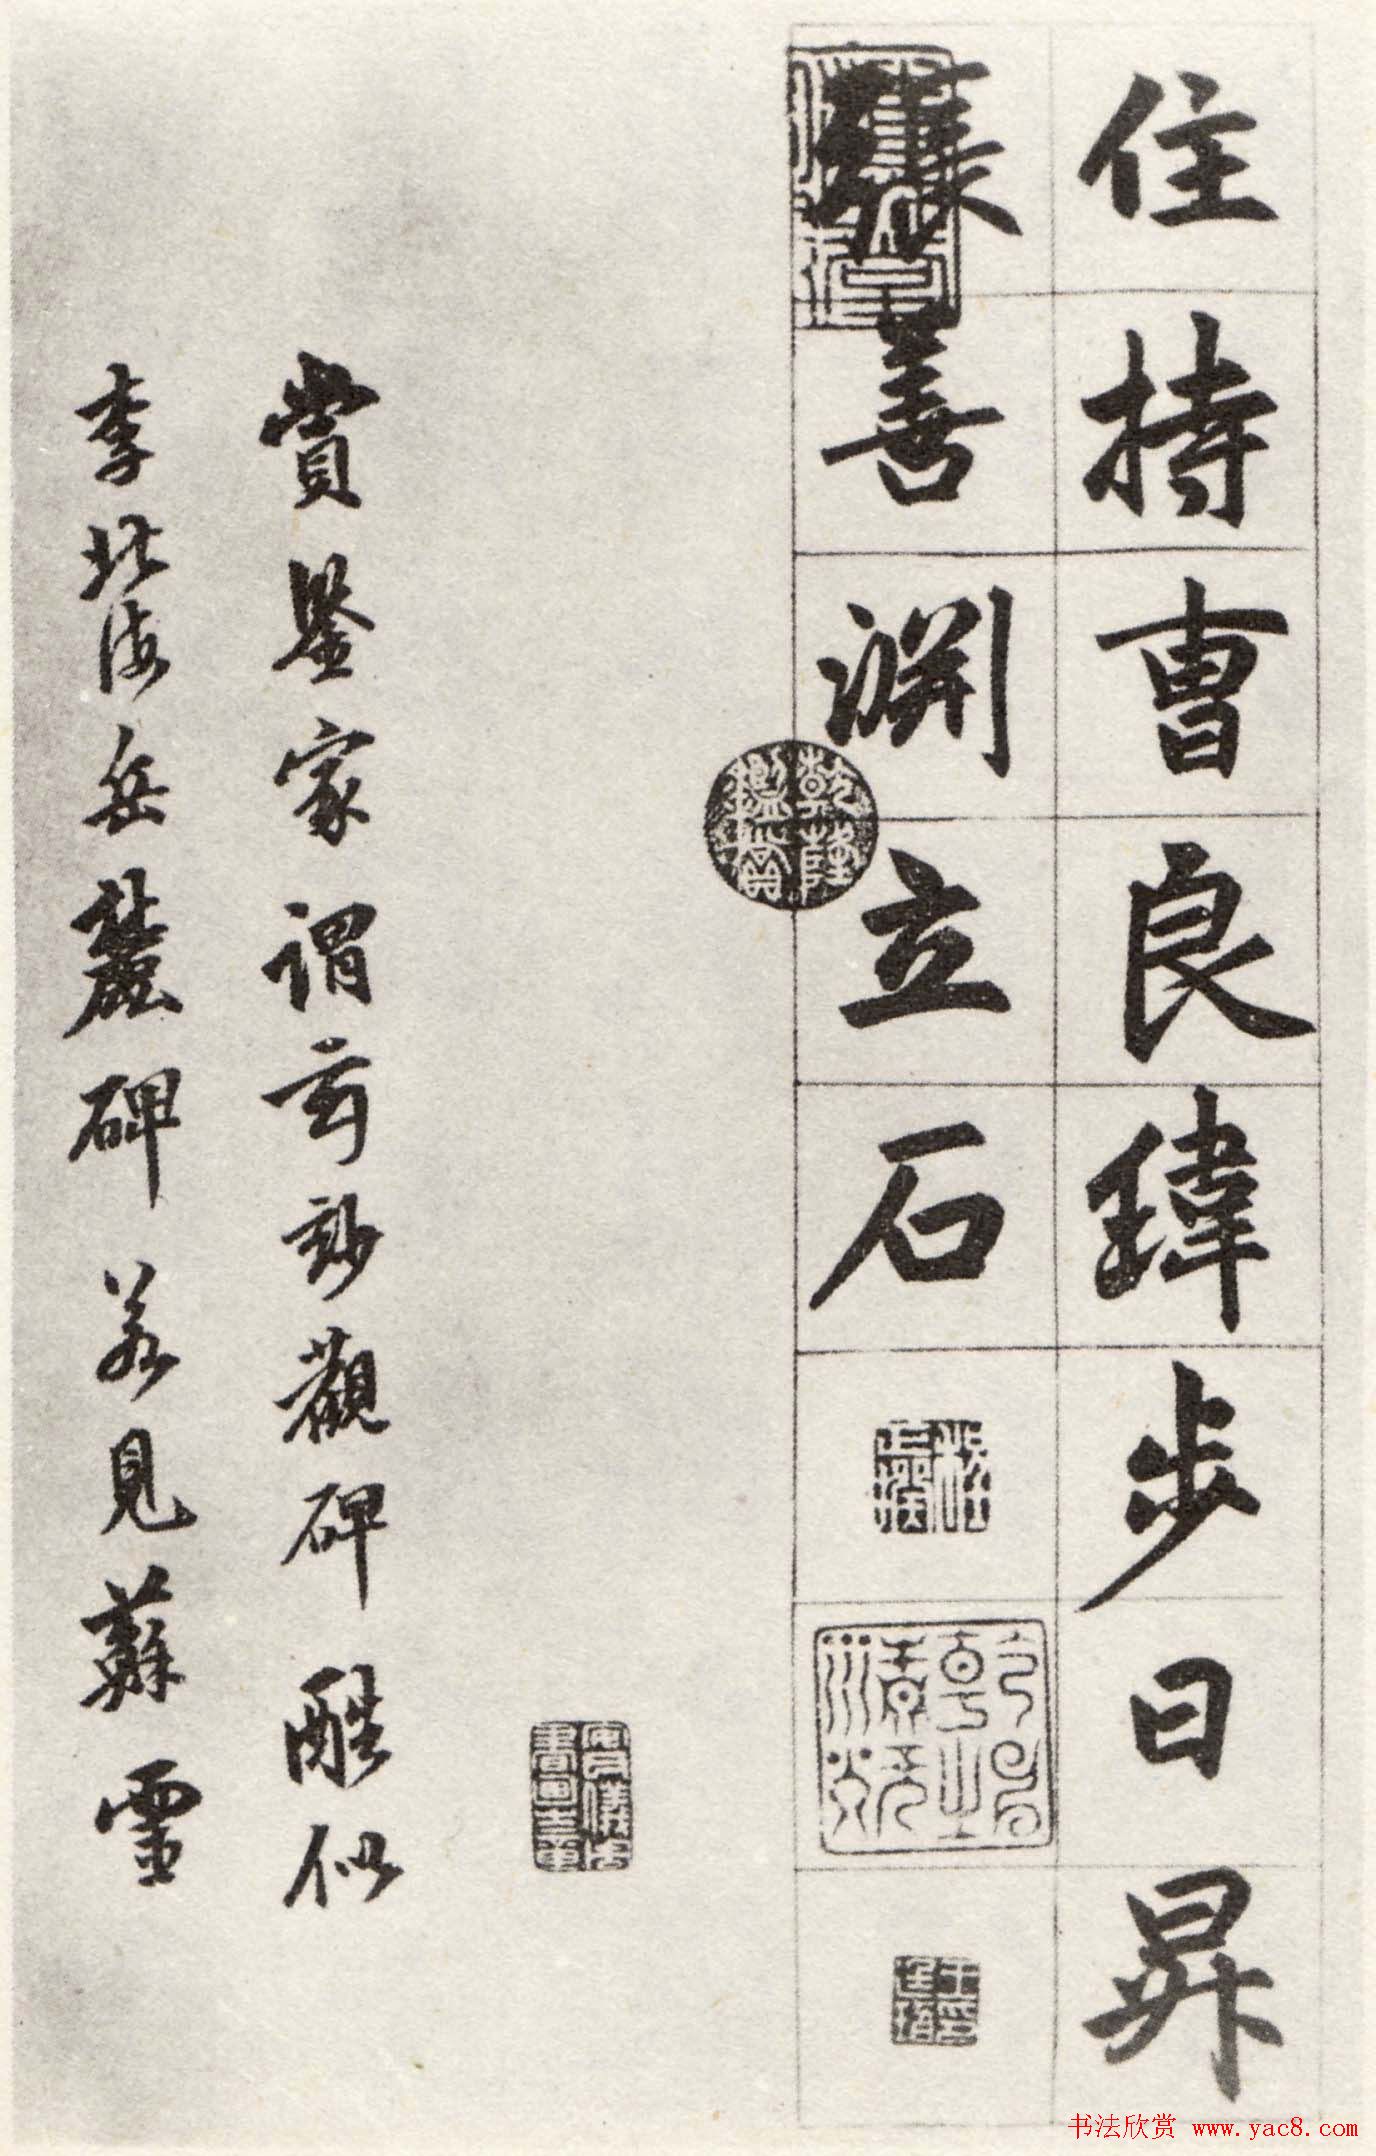 住持曹良瑋步日昇
張善渊立石
乾隆鑑賞
賞鑒家謂玄妙觀碑酷似
李北海岳麓碑若見蘇靈
书法欣赏 www.yac8.com